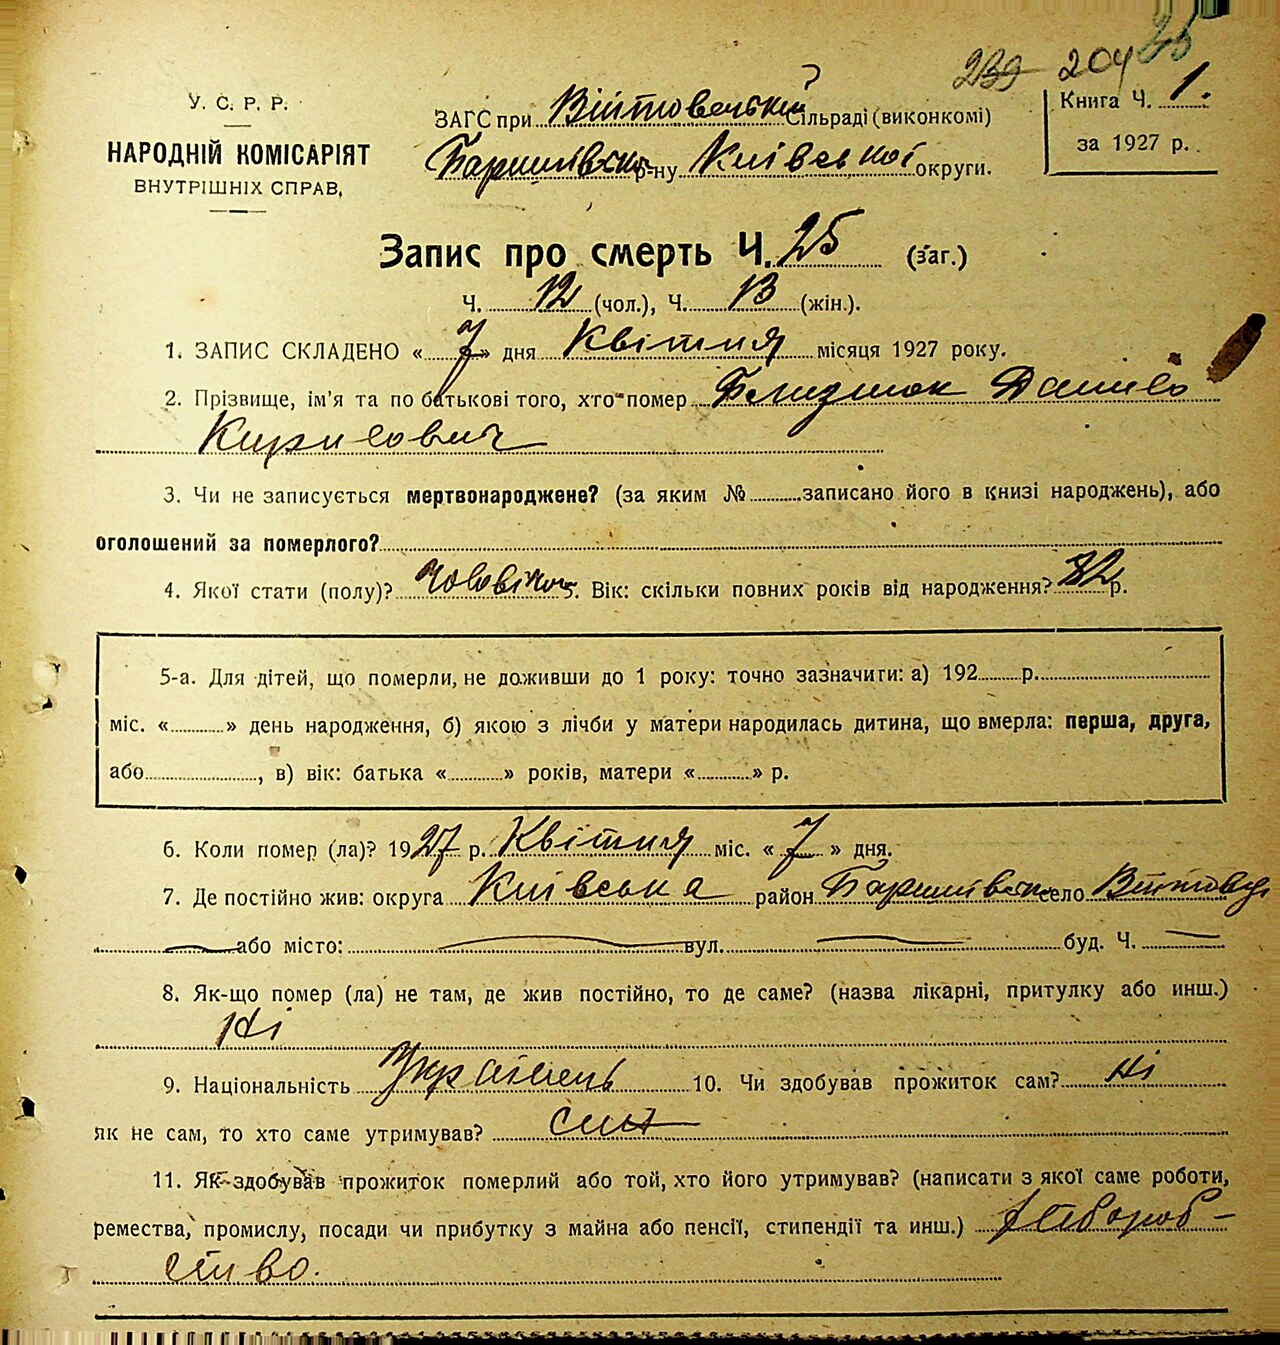 25
239 204
У. С. Р. Р.
НАРОДНІЙ КОМІСАРІЯТ
ВНУТРІШНІХ СПРАВ,
ЗАГС при Війтовецькій Сільраді (виконкомі)
Баришівськ р-ну Київської округи.
Книга Ч. 1.
за 1927 р.
Запис про смерть Ч. 25 (заг.)
Ч. 12 (чол.), Ч. 13 (жін.).
1. ЗАПИС СКЛАДЕНО « 7 » дня Квітня місяця 1927 року.
2. Прізвище, ім'я та по батькові того, хто помер Данило
Кирилович
3. Чи не записується мертвонароджене? (за яким № записано його в книзі народжень), або
оголошений за померлого?
4. Якої стати (полу)? Чоловічої. Вік: скільки повних років від народження? 82 р.
5-а. Для дітей, що померли, не доживши до 1 року: точно зазначити: а) 192 р.
міс. « » день народження, б) якою з лічби у матери народилась дитина, що вмерла: перша, друга,
або , в) вік: батька « » років, матери « » р.
6. Коли помер (ла)? 1927 р. Квітня міс. « 7 » дня.
7. Де постійно жив: округа Київська район Баришівськ село Війтовці
або місто: вул. буд. Ч.
8. Як-що помер (ла) не там, де жив постійно, то де саме? (назва лікарні, притулку або инш.)
Ні
9. Національність Українець 10. Чи здобував прожиток сам? Ні
як не сам, то хто саме утримував? син
11. Як здобував прожиток померлий або той, хто його утримував? (написати з якої саме роботи,
ремества, промислу, посади чи прибутку з майна або пенсії, стипендії та инш.) хлібороб-
ство.